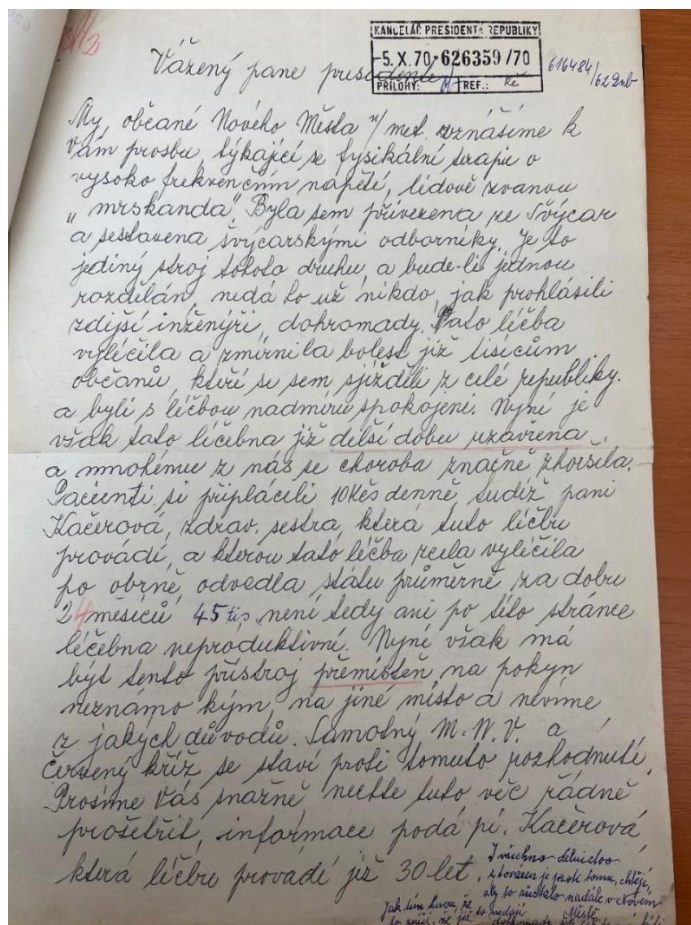 KANCELÁŘ PRESIDENTA REPUBLIKY
-5. X. 70 • 626359 /70
PŘÍLOHY: TREF.:
616484/62
Vážený pane presidente!
My, občané Nového Města n/ met. vznášíme k
Vám prosbu, týkající se fysikální terapie o
vysoko frekvenčním napětí, lidově zvanou
„mrskanda". Byla sem přivezena ze Švýcar
a sestavena švýcarskými odborníky. Je to
jediný stroj tohoto druhu, a bude-li jednou
rozdělán, nedá ho už nikdo, jak prohlásili
zdejší inženýři, dohromady. Tato léčba
vyléčila a zmírnila bolest již tisícům
občanů, kteří se sem sjížděli z celé republiky.
a byli s léčbou nadmíru spokojeni. Nyní je
však tato léčebna již delší dobu uzavřena
a mnohému z nás se choroba značně zhoršila.
Pacienti si připláceli 10 Kčs denně, tudíž paní
Kačerová, zdrav. sestra, která tuto léčbu
provádí, a kterou tato léčba zcela vyléčila
po obrně, odvedla státu průměrně za dobu
24 měsíců 45 tis, není tedy ani po této stránce
léčebna neproduktivní. Nyní však má
být tento přístroj přemístěn na pokyn
neznámo kým, na jiné místo a nevíme
z jakých důvodů. Samotný M.N.V. a
Červený kříž se staví proti tomuto rozhodnutí.
Prosíme Vás snažně nechte tuto věc řádně
prošetřit, informace podá pí. Kačerová,
která léčbu provádí již 30 let.
I všechno dělnictvo
z továren je proti tomu, chtějí,
aby to zůstalo nadále v Novém
Městě